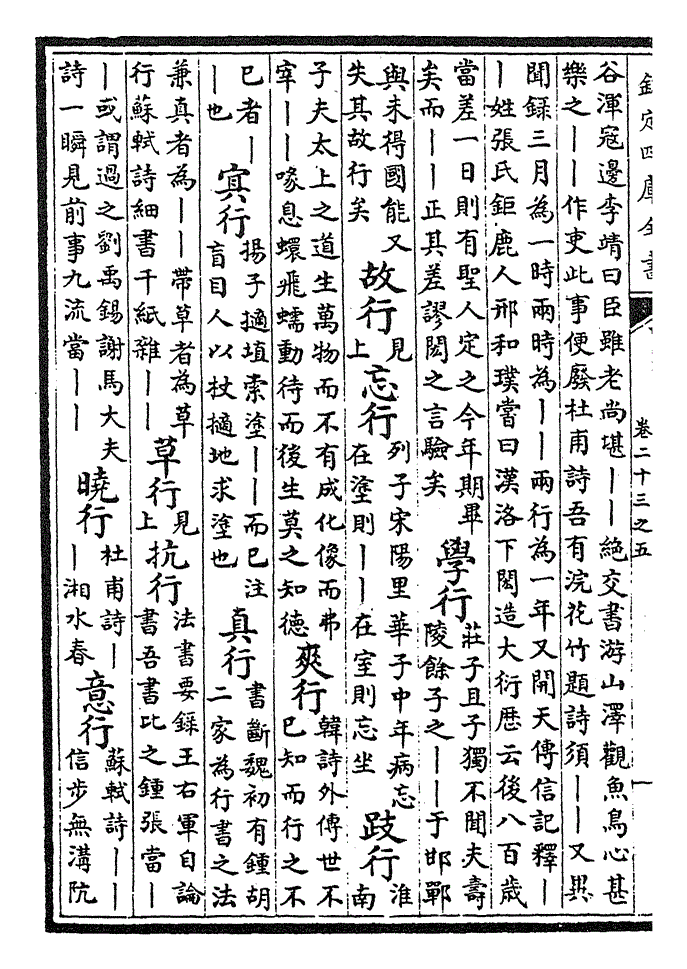 欽定四庫全書
卷二十三之五
一
谷渾冦邊李靖曰臣雖老尚堪——絶交書游山澤觀魚鳥心甚
樂之——作吏此事便廢杜甫詩吾有浣花竹題詩須——又異
聞録三月為一時兩時為——兩行為一年又開天傳信記釋—
—姓張氏鉅鹿人邢和璞嘗曰漢洛下閎造大衍厯云後八百歳
當差一日則有聖人定之今年期畢
矣而——正其差謬閎之言驗矣
學行
莊子且子獨不聞夫壽
陵餘子之——于邯鄲
與未得國能又
失其故行矣
故行
見
上
忘行
列子宋陽里華子中年病忘
在塗則——在室則忘坐
跂行
淮
南
子夫太上之道生萬物而不有成化像而弗
宰——喙息蠉飛蠕動待而後生莫之知德
爽行
韓詩外傳世不
已知而行之不
已者—
—也
冥行
揚子擿埴索塗——而已注
盲目人以杖擿地求塗也
真行
書斷魏初有鍾胡
二家為行書之法
兼真者為——帶草者為草
行蘇軾詩細書千紙雜——
草行
見
上
抗行
法書要録王右軍自論
書吾書比之鍾張當—
—或謂過之劉禹錫謝馬大夫
詩一瞬見前事九流當——
曉行
杜甫詩—
—湘水春
意行
蘇軾詩——
信步無溝阬